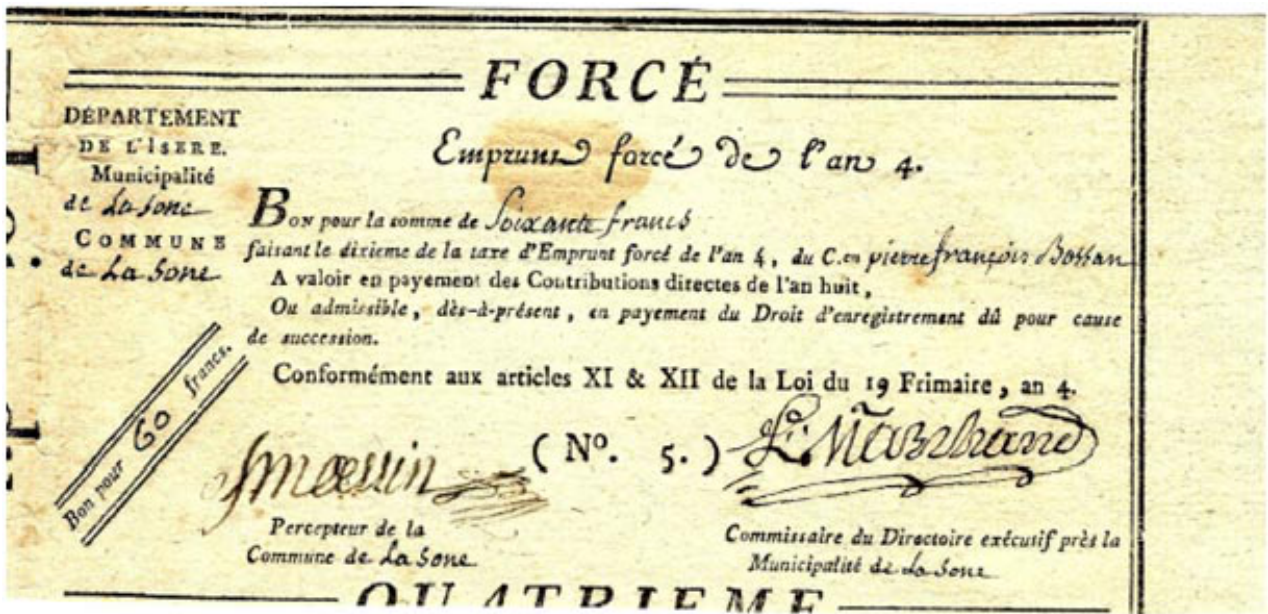 FORCÉ
DÉPARTEMENT
DE L'ISERE.
Municipalité
de La Sone
COMMUNE
de La Sone
Emprunt forcé de l'an 4.
BON pour la somme de Soixante francs
faisant le dixieme de la taxe d'Emprunt forcé de l'an 4, du C.en pierre françois Bossan
A valoir en payement des Contributions directes de l'an huit,
Ou admissible, dès-à-présent, en payement du Droit d'enregistrement dû pour cause
de succession.
Conformément aux articles XI & XII de la Loi du 19 Frimaire, an 4.
Bon pour 60 francs.
(Nº. 5.)
Marchand
Percepteur de la
Commune de La Sone
Commissaire du Directoire exécutif près la
Municipalité de La Sone
QUATRIEME